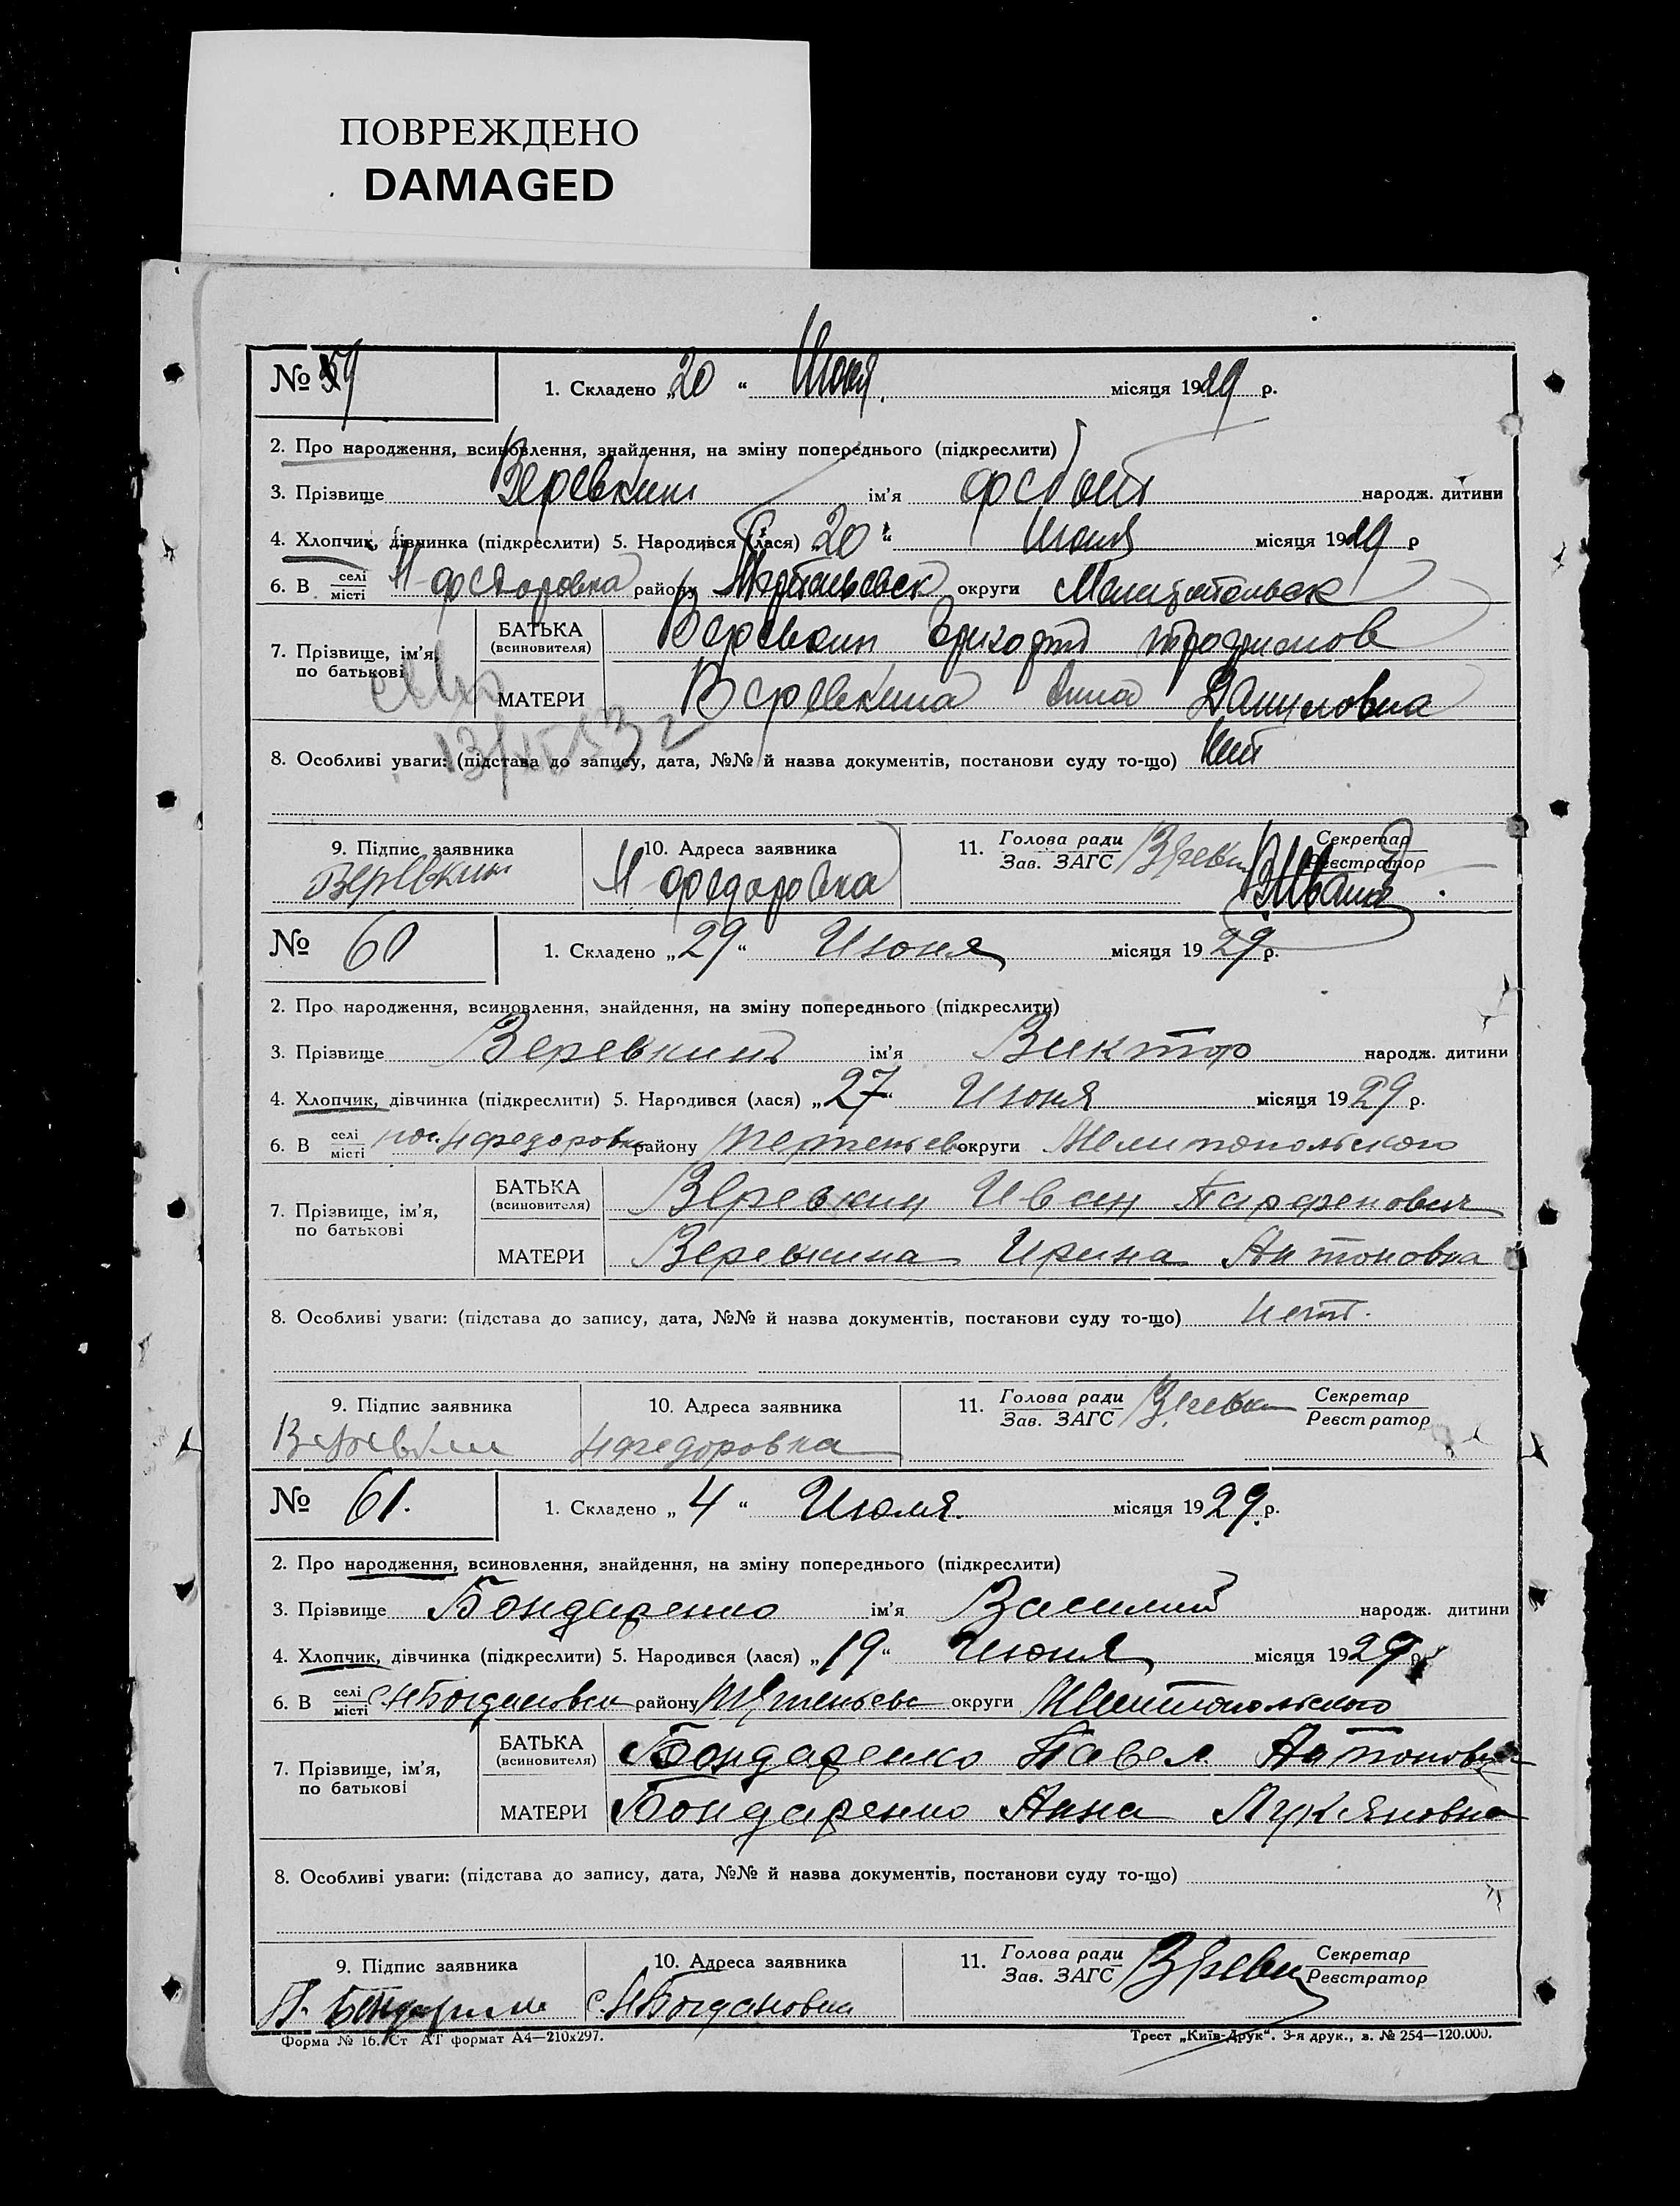 ПОВРЕЖДЕНО
DAMAGED
№ 59 1. Складено „20“ Июня місяця 1929 р.
2. Про народження, всиновлення, знайдення, на зміну попереднього (підкреслити)
3. Прізвище Веревкин ім’я народж. дитини
4. Хлопчик, дівчинка (підкреслити) 5. Народився (лася) „20“ Июня місяця 1929 р
6. В селі місті Н-Федоровка району округи Мелитопольск
7. Прізвище, ім’я, по батькові
БАТЬКА (всиновителя) Веревкин
МАТЕРИ Веревкина Анна Даниловна
8. Особливі уваги: (підстава до запису, дата, №№ й назва документів, постанови суду то-що) Нет
9. Підпис заявника 10. Адреса заявника 11. Голова ради Зав. ЗАГС Секретар Реєстратор
Веревкин Н Федоровка
№ 60 1. Складено „29“ Июня місяця 1929 р.
2. Про народження, всиновлення, знайдення, на зміну попереднього (підкреслити)
3. Прізвище Веревкин ім’я Виктор народж. дитини
4. Хлопчик, дівчинка (підкреслити) 5. Народився (лася) „27“ Июня місяця 1929 р.
6. В селі місті пос. Н Федоровка району Терпеньев округи Мелитопольского
7. Прізвище, ім’я, по батькові
БАТЬКА (всиновителя) Веревкин Иван Парфенович
МАТЕРИ Веревкина Ирина Антоновна
8. Особливі уваги: (підстава до запису, дата, №№ й назва документів, постанови суду то-що) Нет.
9. Підпис заявника 10. Адреса заявника 11. Голова ради Зав. ЗАГС Секретар Реєстратор
Веревкин Н Федоровка
№ 61. 1. Складено „4“ Июля. місяця 1929. р.
2. Про народження, всиновлення, знайдення, на зміну попереднього (підкреслити)
3. Прізвище Бондаренко ім’я Василий народж. дитини
4. Хлопчик, дівчинка (підкреслити) 5. Народився (лася) „19“ Июня місяця 1929 р.
6. В селі місті с. Н Богдановка району Терпеньевс округи Мелитопольского
7. Прізвище, ім’я, по батькові
БАТЬКА (всиновителя) Бондаренко Павел Антонович
МАТЕРИ Бондаренко Анна Лукяновна
8. Особливі уваги: (підстава до запису, дата, №№ й назва документів, постанови суду то-що)
9. Підпис заявника 10. Адреса заявника 11. Голова ради Зав. ЗАГС Секретар Реєстратор
П. Бондаренко с. Н Богдановка
Форма № 16. Ст АТ формат А4—210х297. Трест „Київ-Друк“. 3-я друк., з. № 254—120.000.